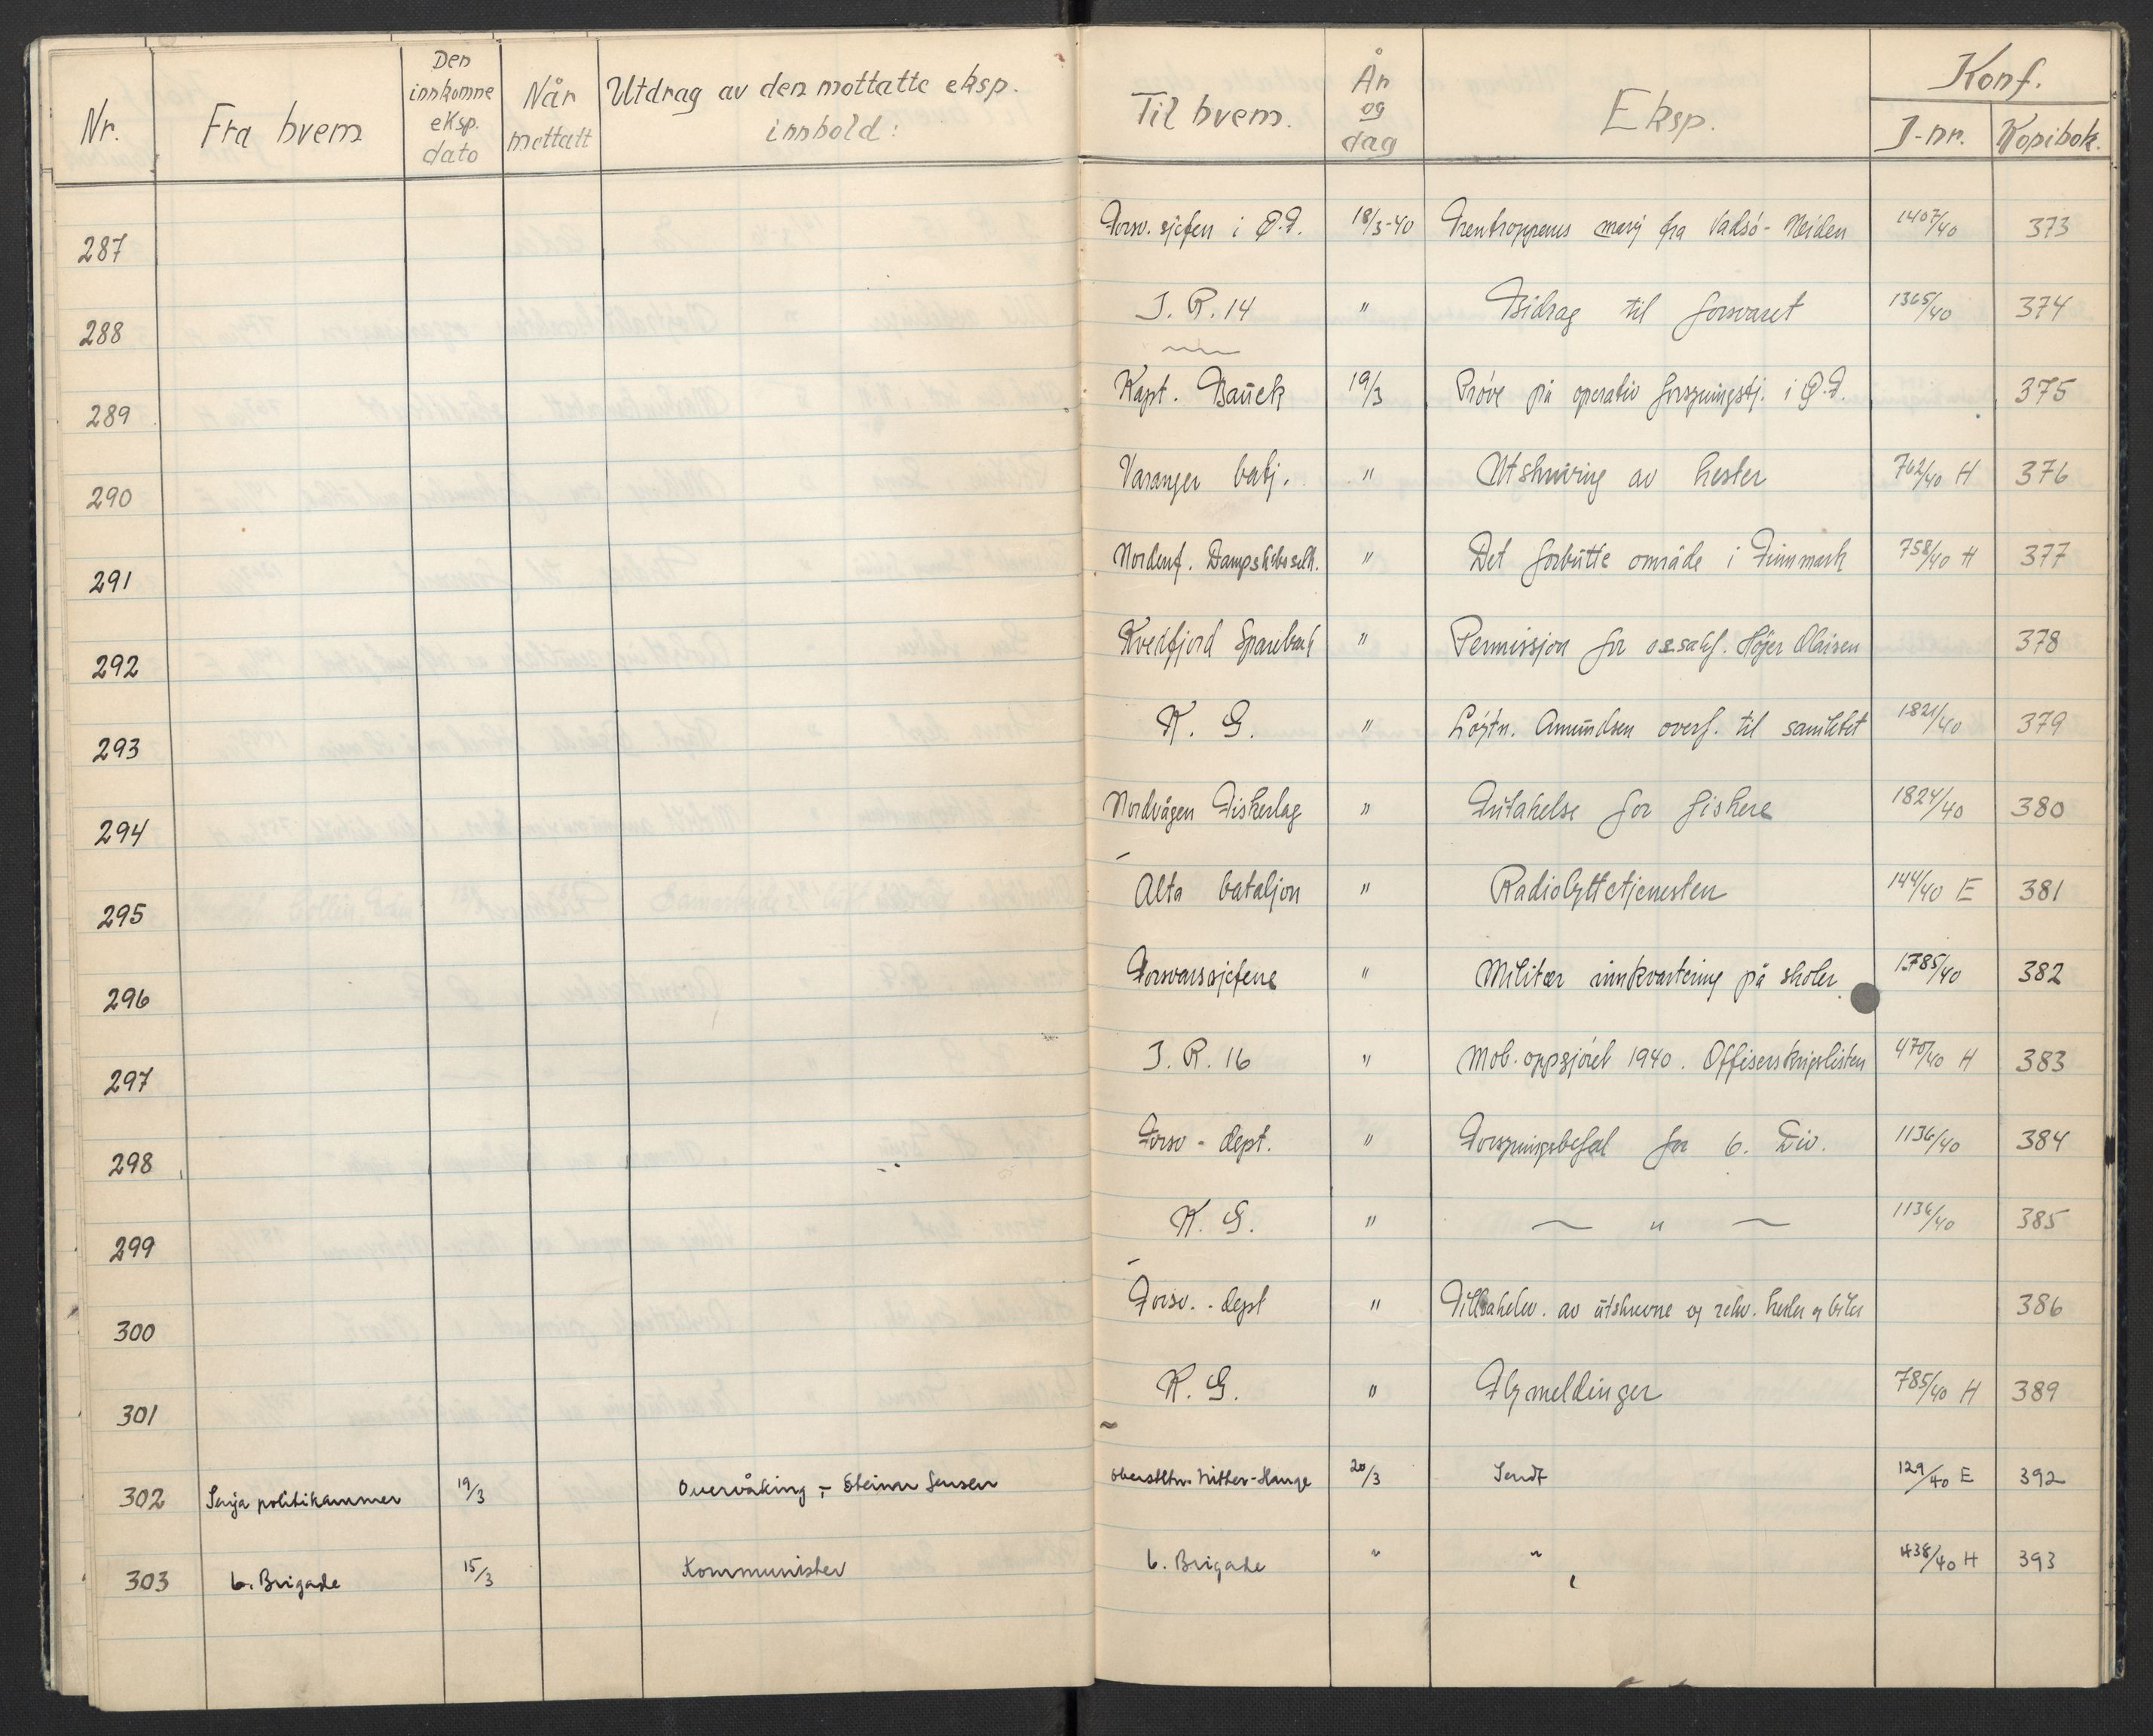 Nr. Fra hvem Den innkomne eksp. dato Når mottatt Utdrag av den mottatte eksp. innhold: Til hvem. År og dag Eksp. Konf. J-nr. Kopibok.
287 Forsv. sjefen i Ø.F. 18/3-40 fra Vadsö - Neiden 1407/40 373
288 I. R. 14 " Bidrag til forsvaret 1365/40 374
289 Kapt. Bauck 19/3 Prøve på operativ forsyningstj. i Ø.F. 375
290 Varanger batj. " Utskrivning av hester 762/40 H 376
291 Nordenf. Dampskibsselsk. " Det forbudte område i Finnmark 758/40 H 377
292 Kvedfjord Sparebank " Permissjon for Höjer Olaisen 378
293 K. G. " Löytn. Amundsen overf. til sambbet 1821/40 379
294 Nordvågen Fiskerlag " Fritakelse for fiskere 1824/40 380
295 Alta bataljon " Radiolyttetjenesten 144/40 E 381
296 Forsvarssjefene " Militær innkvartering på skoler. 1785/40 382
297 I. R. 16 " Mob. oppgjöret 1940. Offiserskrigslisten 470/40 H 383
298 Forsv - dept. " Forsyningsbefal for 6. Div. 1136/40 384
299 K. G. " — " — 1136/40 385
300 Forsv. - dept " av utskrevne og rekv. hester og biler 386
301 K. G. " Flymeldinger 785/40 H 389
302 Senja politikammer 19/3 Overvåking - Steinar Jensen Oberstltn. 20/3 Sendt 129/40 E 392
303 6. Brigade 15/3 Kommunister 6. Brigade " " 438/40 H 393